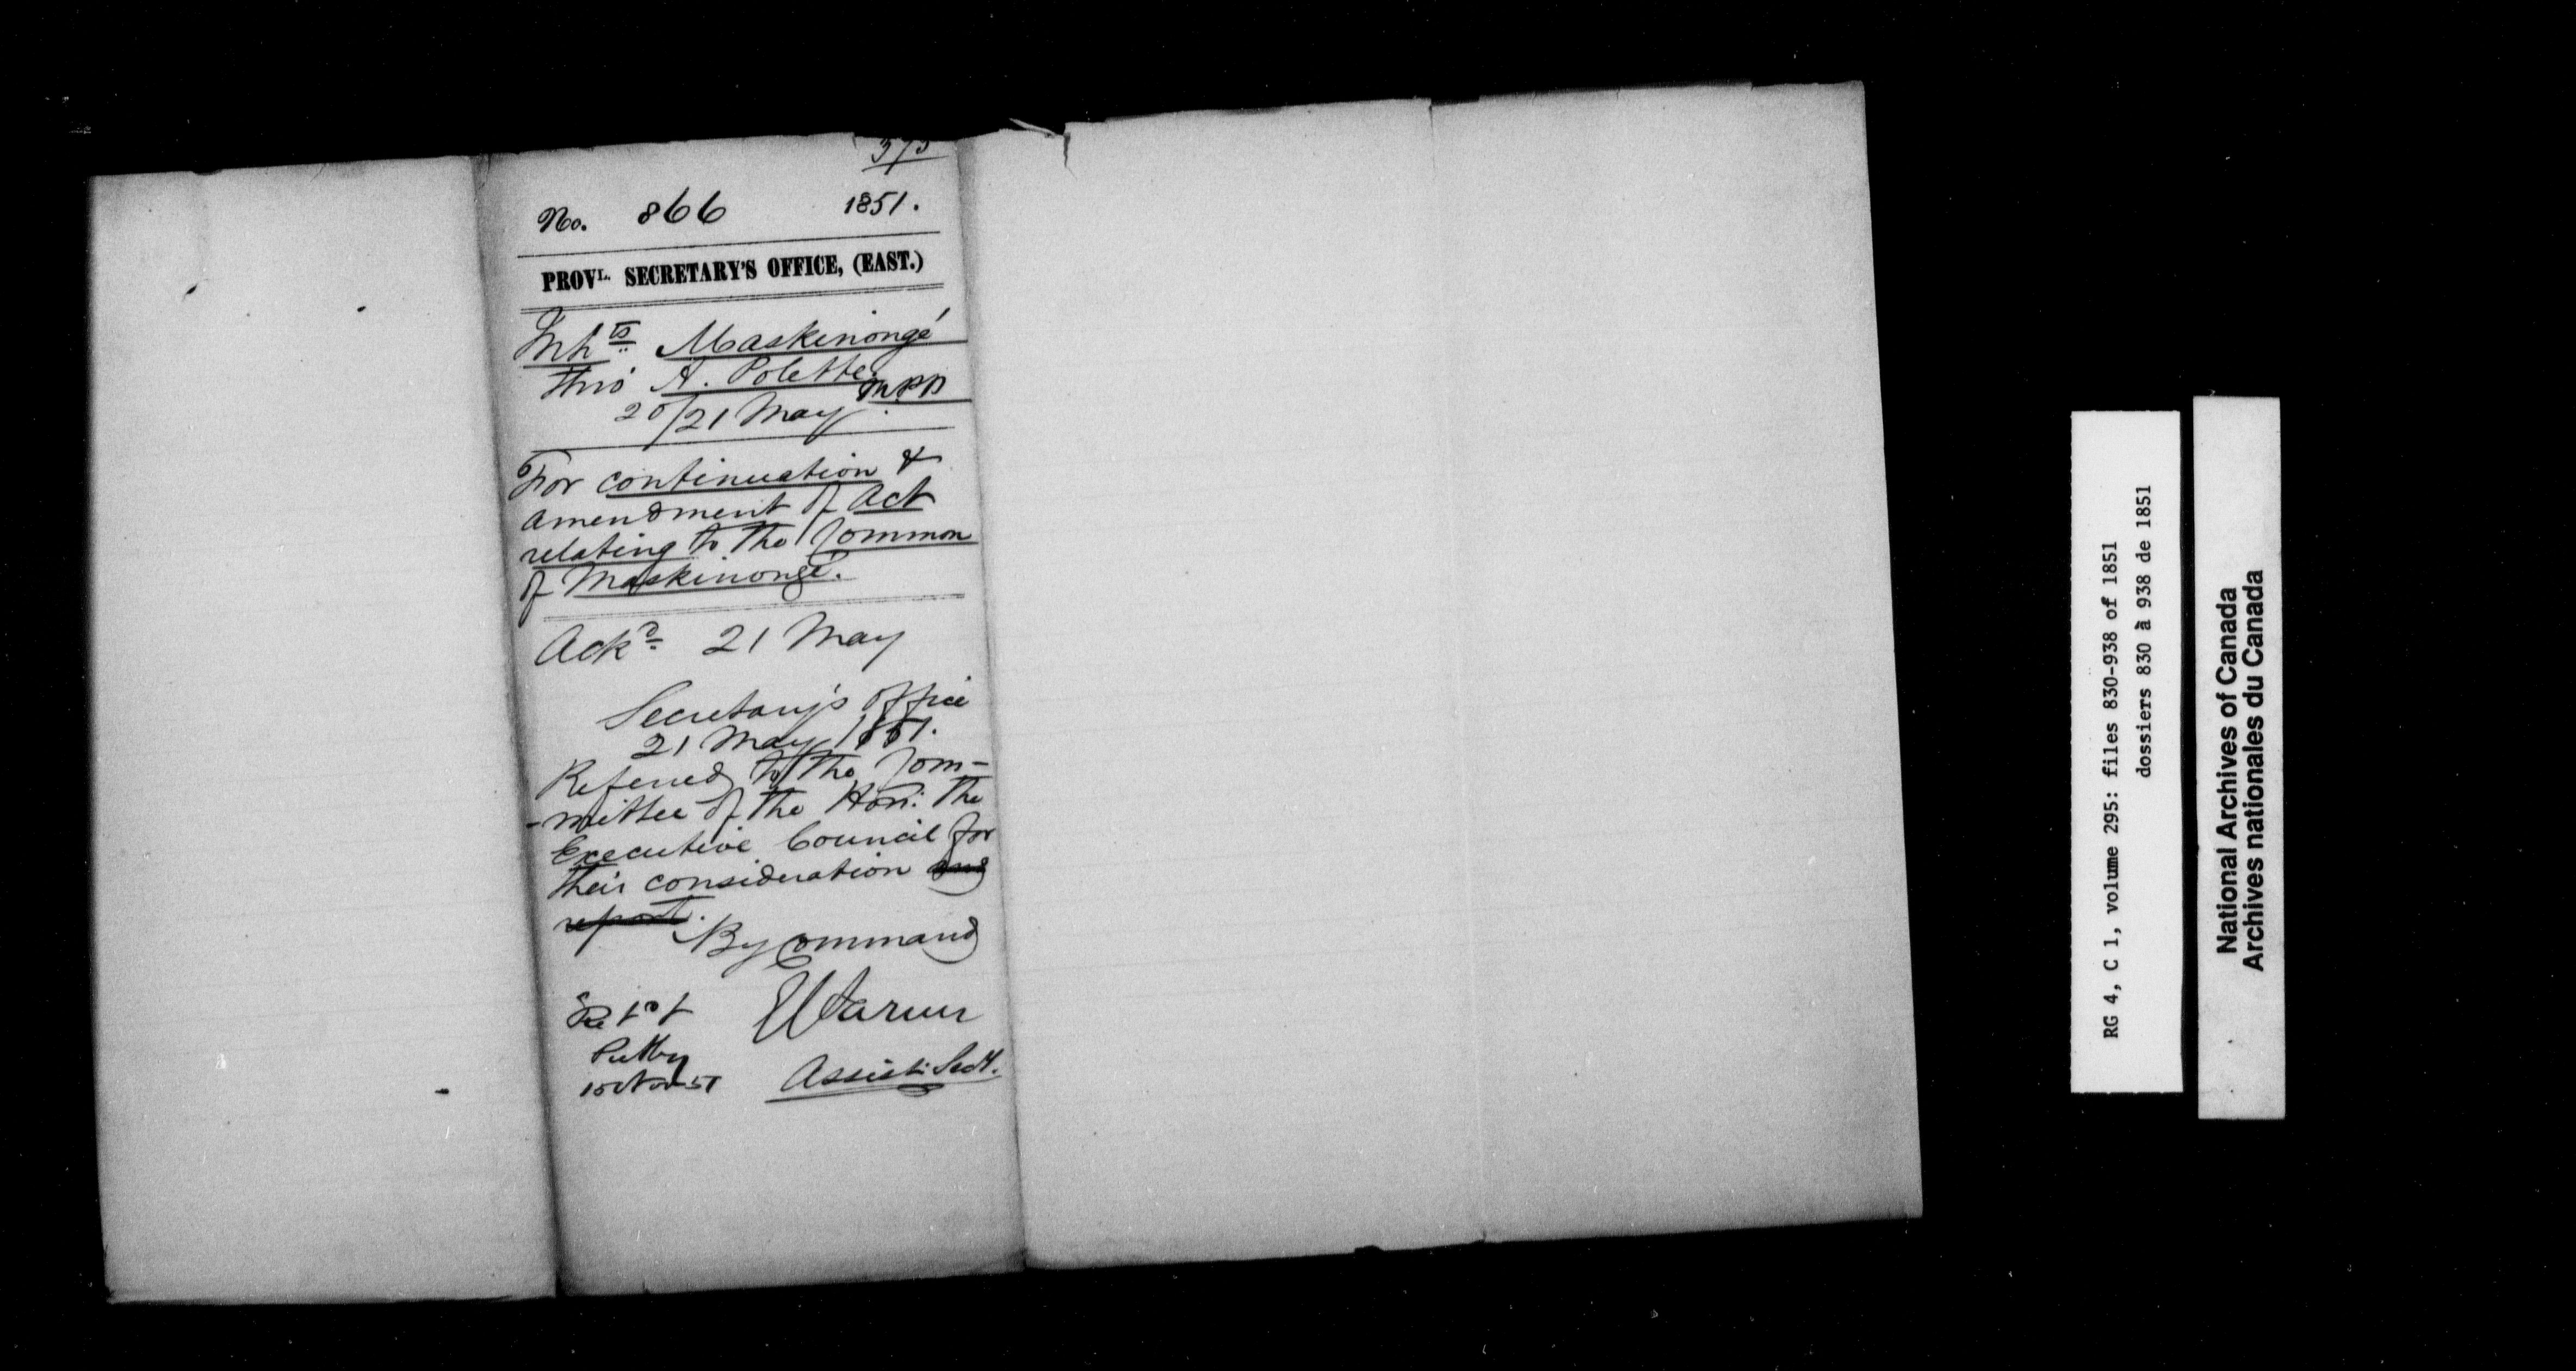 375
No. 866 1851.
PROVL. SECRETARY'S OFFICE, (EAST.)
Inhts Maskinongé
thro' A. Polette
MPP
20/21 May
For continuation &
amendment of Act
relating to the Common
of Maskinongé.
Ackd 21 May
Secretary's Office
21 May 1851.
Referred to the Com-
-mittee of the Hon: The
Executive Council for
their consideration and
report.
By Command
Assist: Secy.
RG 4, C 1, volume 295: files 830-938 of 1851
dossiers 830 à 938 de 1851
National Archives of Canada
Archives nationales du Canada